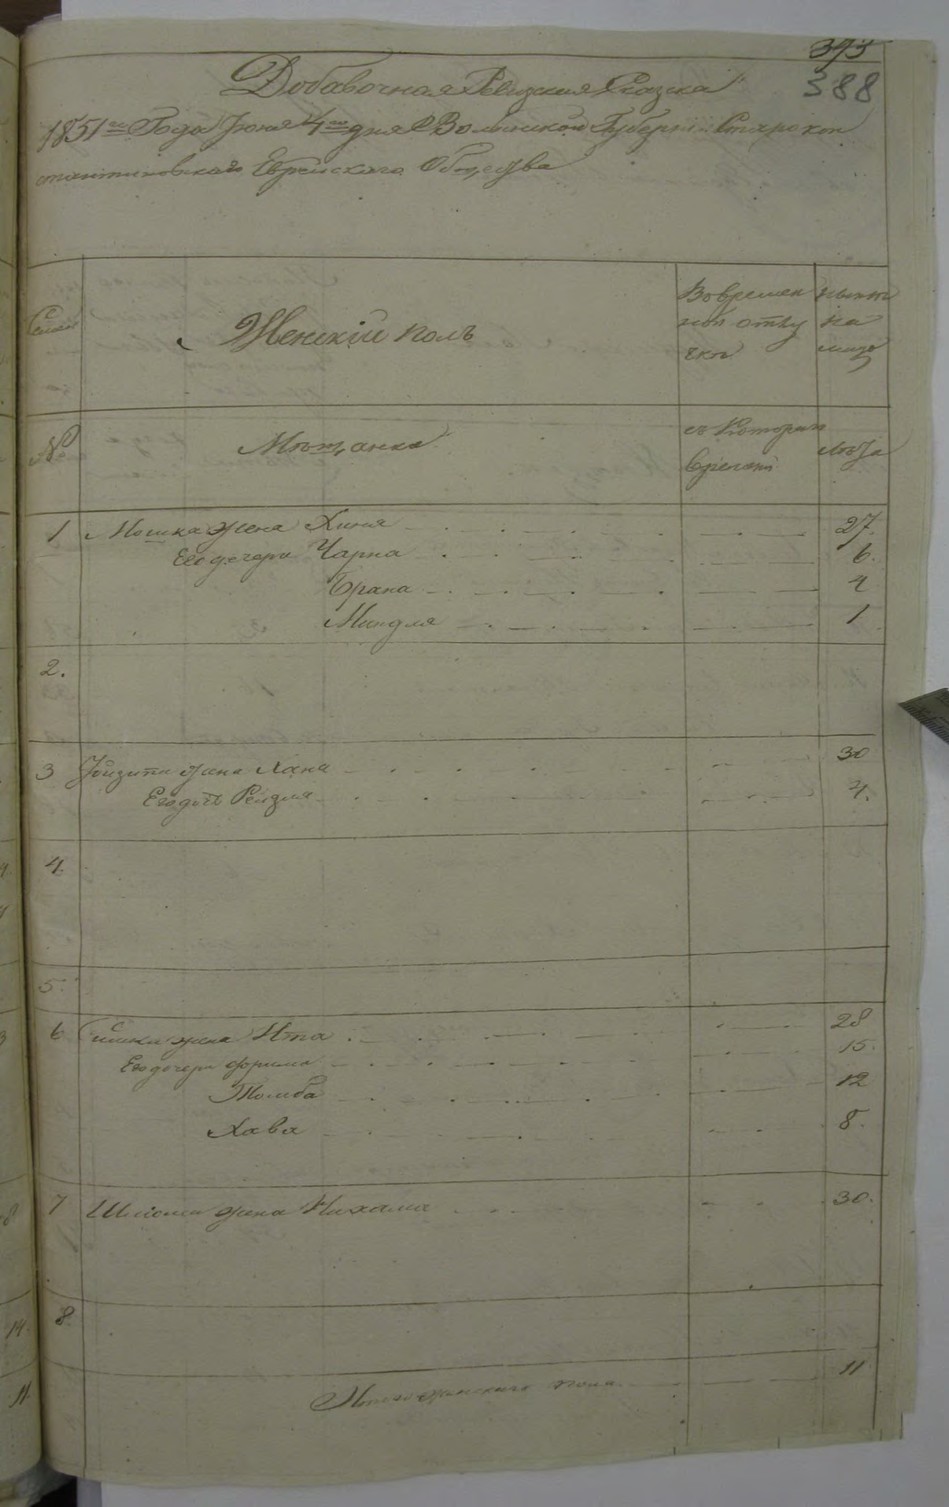 393
388
Добавочная Ревизкия Сказка
1851го Года Июня 4го дня Волынской Губернии Старокон
стантиновскаго Еврейскаго Общества
Семьи
Женскій полъ
Во времен
ной отлу
чкѣ
ныне
на
лицо
№
Мѣщанка
съ котораго
времени
лѣта
1 Мошка жена Хиня 27.
Его дочери Чарна 6.
Брана 4
Миндля 1
2.
3 жена Хана 30
Его дочь Рейзля 4.
4.
5.
6 жена Ита 28
Его дочери Фрима 15.
Томба 12
Хава 8.
7 Шлиома жена Нихама 30.
8
Итого женскаго пола 11
14.
11.